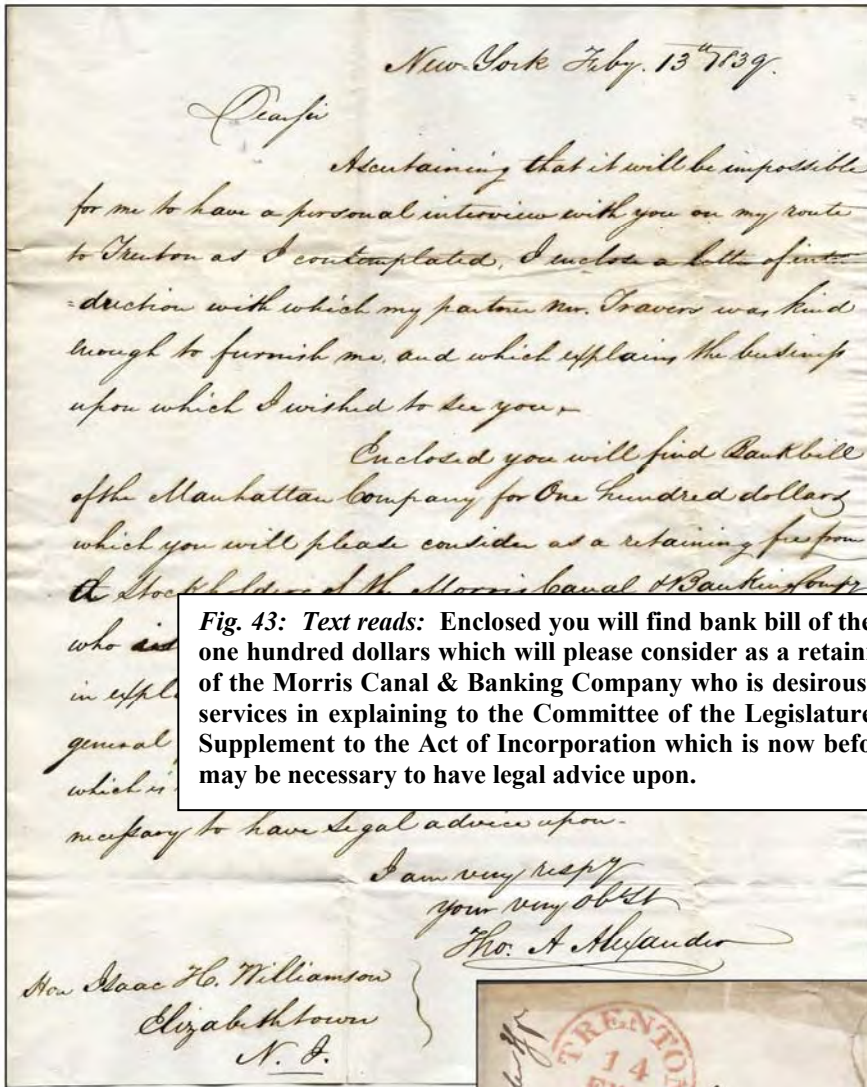 New-York Feby. 13th 1839.
Dear Sir
Ascertaining that it will be impossible
for me to have a personal interview with you on my route
to Trenton as I contemplated, I enclose a letter of intro
=duction with which my partner Mr. Travers was kind
enough to furnish me, and which explains the business
upon which I wished to see you.
Enclosed you will find Bank bill
of the Manhattan Company for One hundred dollars
which you will please consider as a retaining fee from
a Stockholder of the Morris Canal & Banking Compy
who
in expl
general
which is
necessary to have legal advice upon.
I am very respy
your very obt St
Tho. A Alexander
Hon Isaac H. Williamson
Elizabethtown
N. J.
Fig. 43: Text reads: Enclosed you will find bank bill of the
one hundred dollars which will please consider as a retain
of the Morris Canal & Banking Company who is desirous
services in explaining to the Committee of the Legislature
Supplement to the Act of Incorporation which is now befo
may be necessary to have legal advice upon.
TRENTON
14